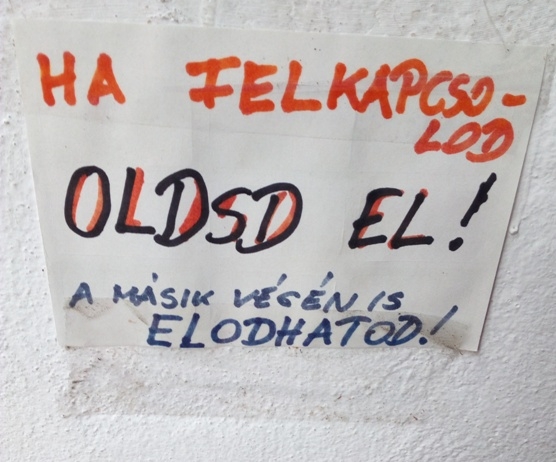 HA FELKAPCSO-
LOD
OLDSD EL!
A MÁSIK VÉGÉN IS
ELODHATOD!